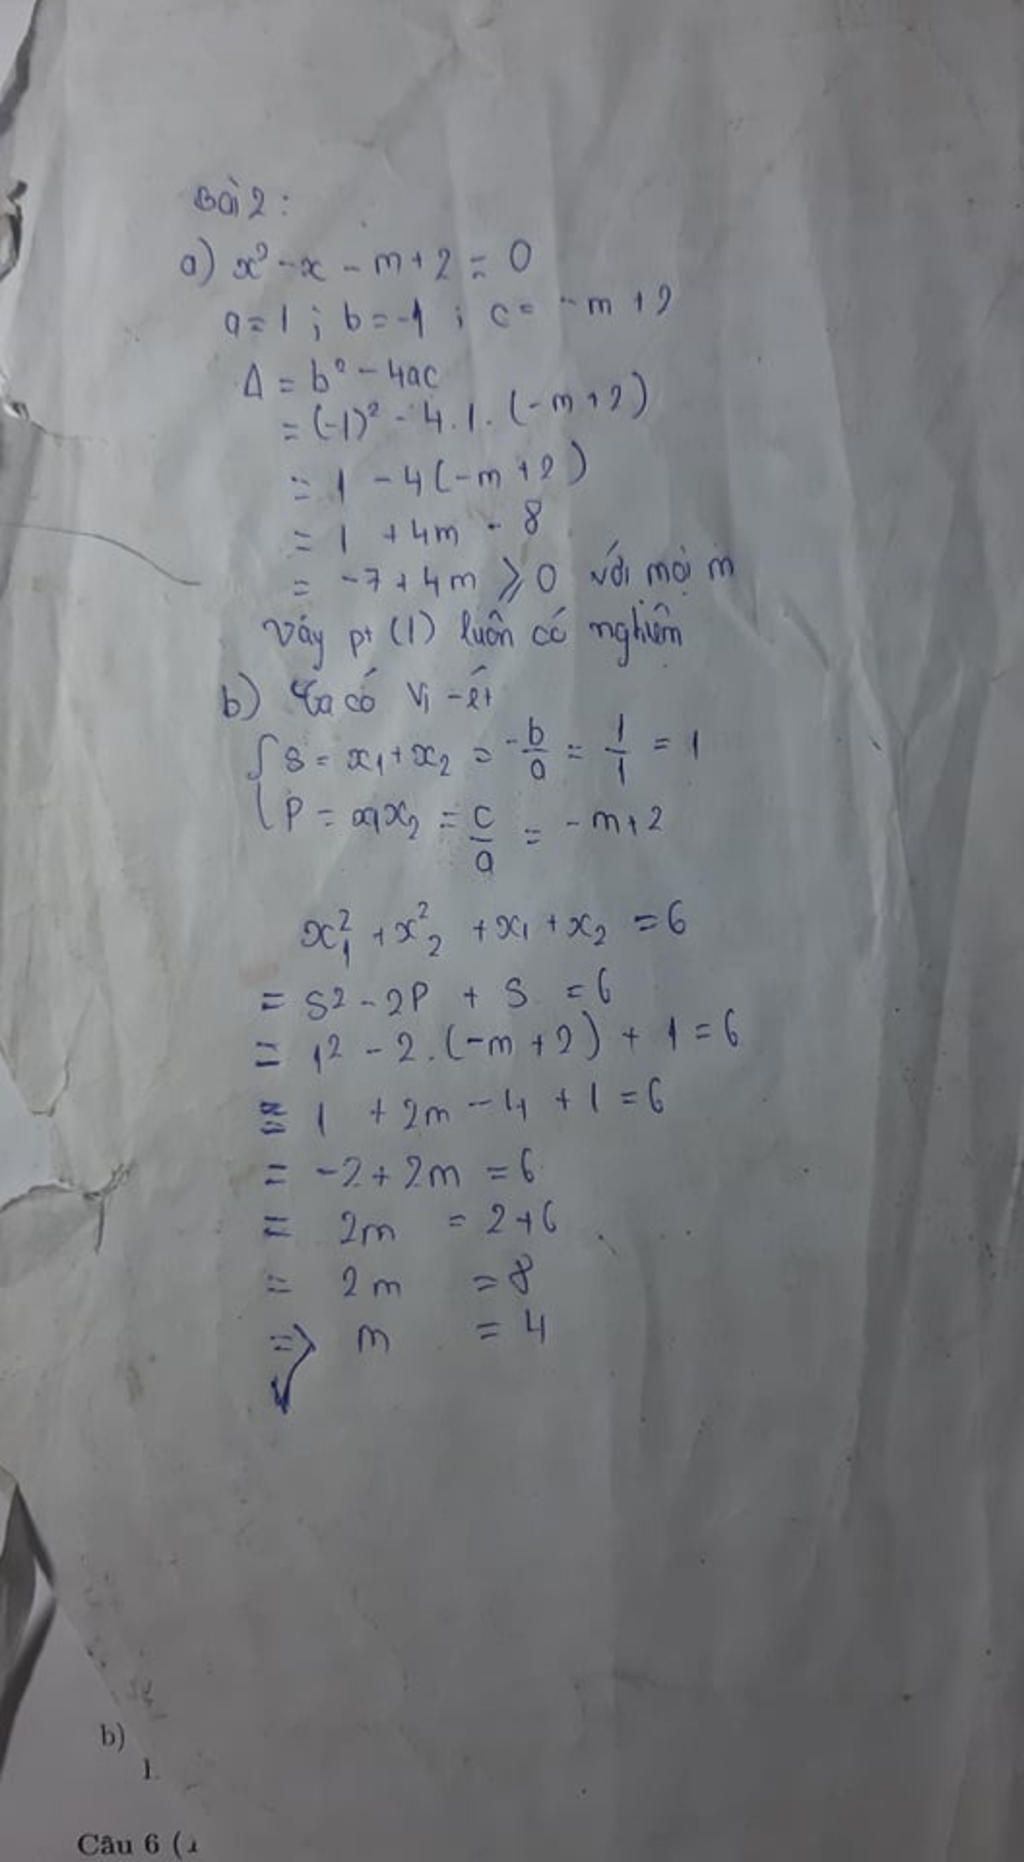 Bài 2:
a) x² - x - m + 2 = 0
a = 1 ; b = -1 ; c = -m + 2
Δ = b² - 4ac
= (-1)² - 4.1.(-m + 2)
= 1 - 4(-m + 2)
= 1 + 4m - 8
= -7 + 4m ⩾ 0 với mọi m
Vậy pt (1) luôn có nghiệm
b) Ta có Vi-ét
{ S = x₁ + x₂ = -b/a = 1/1 = 1
P = x₁x₂ = c/a = -m + 2
x₁² + x₂² + x₁ + x₂ = 6
= S² - 2P + S = 6
= 1² - 2.(-m + 2) + 1 = 6
= 1 + 2m - 4 + 1 = 6
= -2 + 2m = 6
= 2m = 2 + 6
= 2m = 8
=> m = 4
b)
1.
Câu 6 (